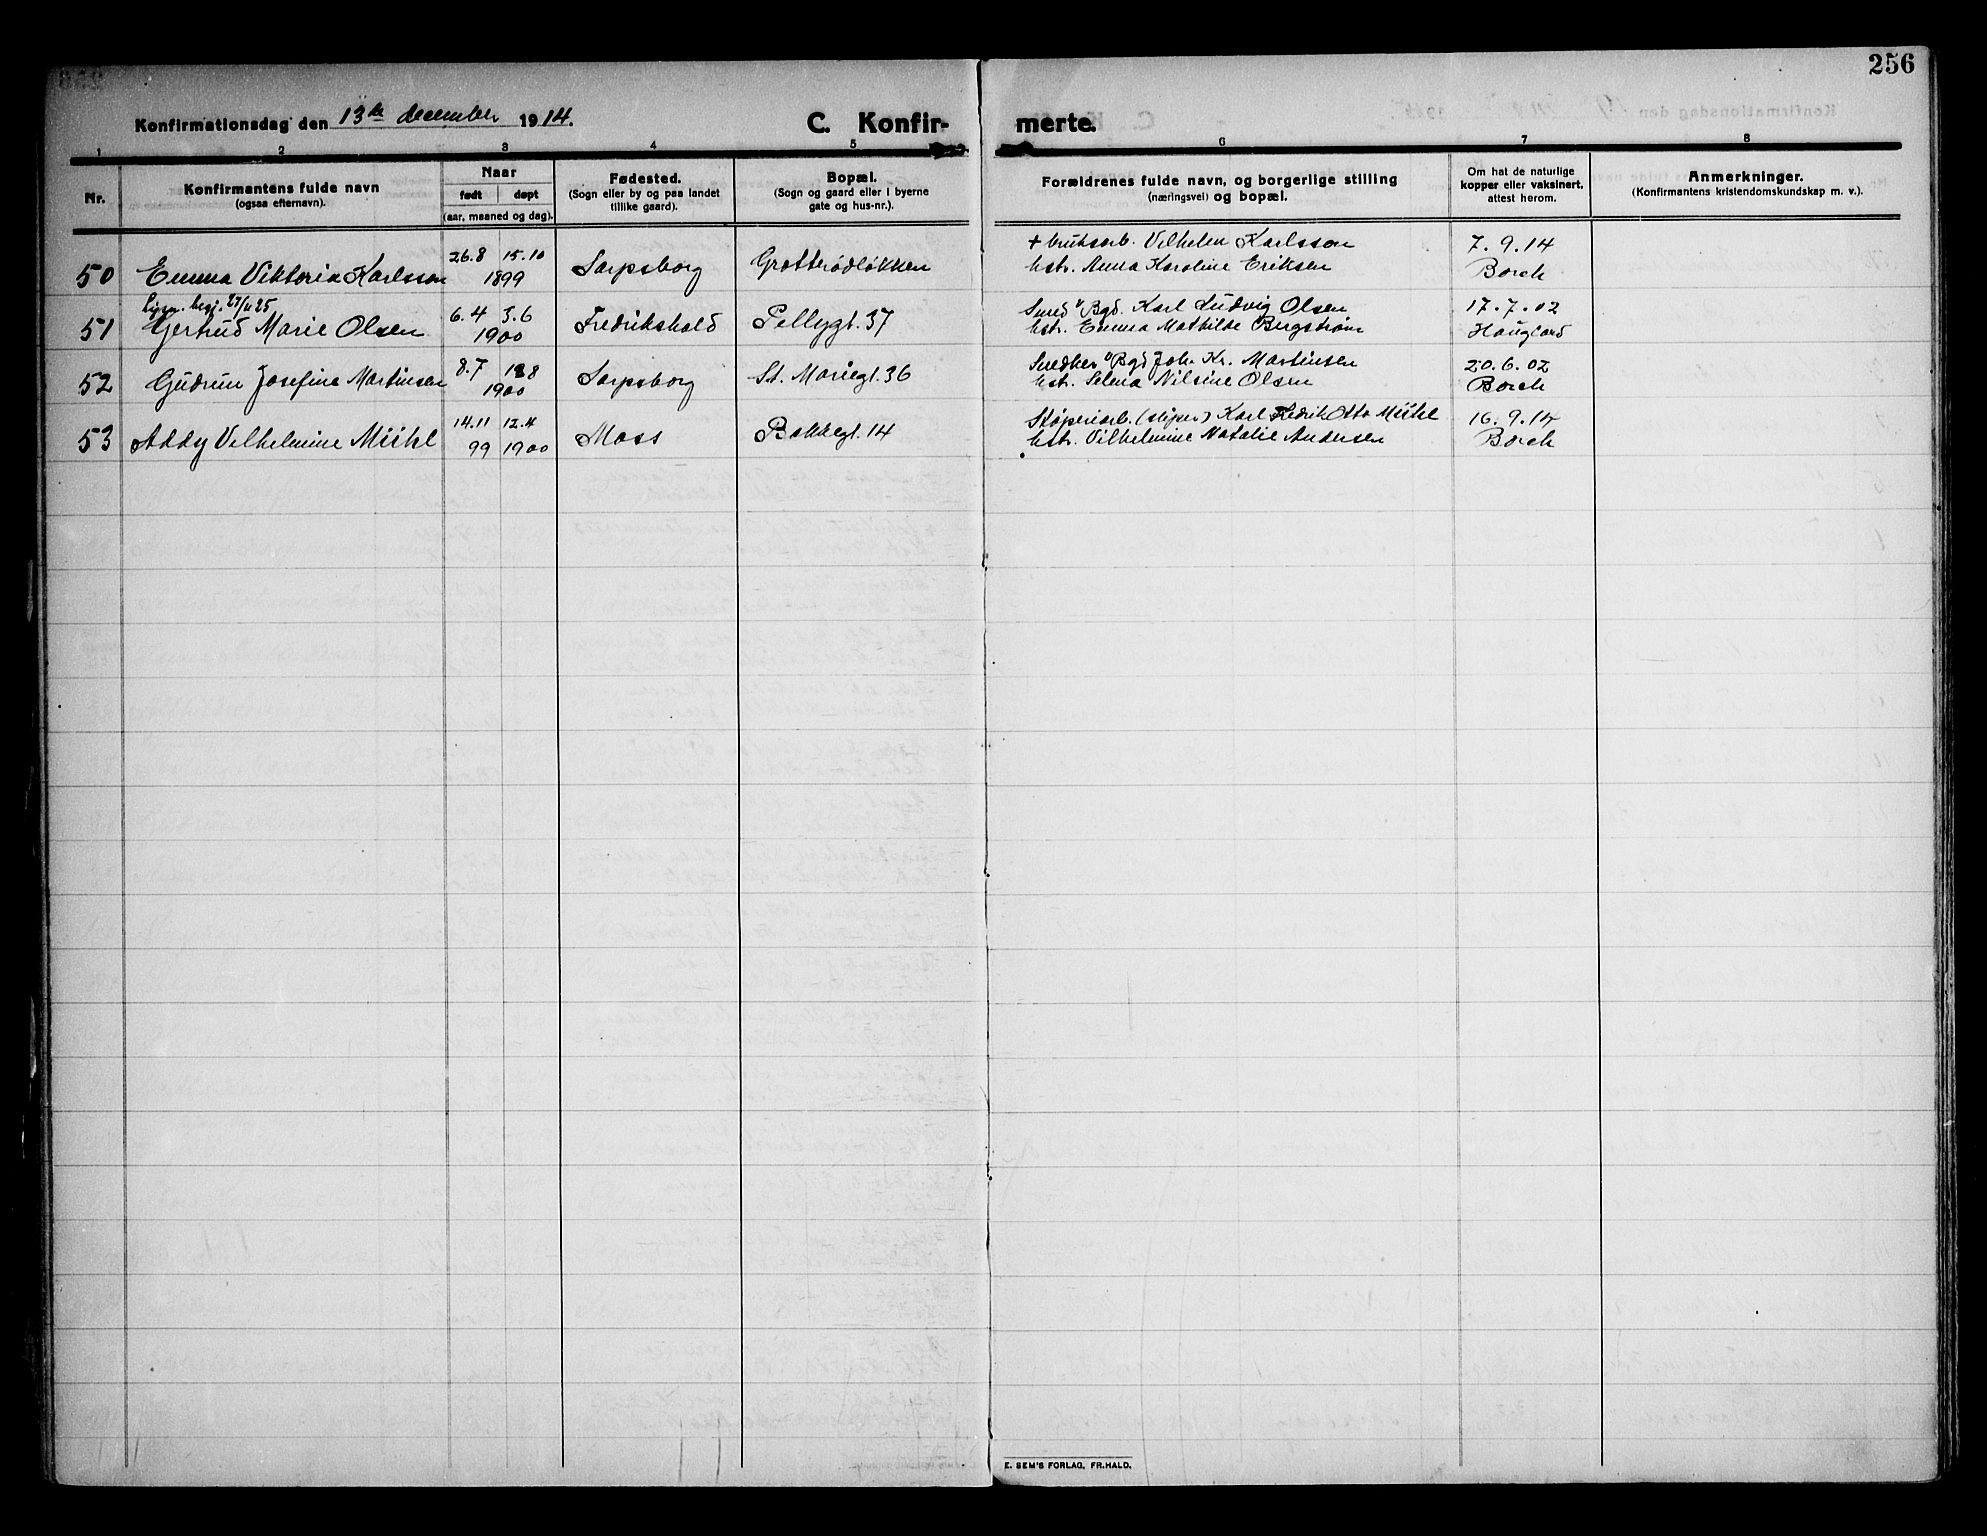 256
Konfirmationsdag den 13de december 1914.
C. Konfirmerte.
1 2 3 4 5 6 7 8
Nr.
Konfirmantens fulde navn
(ogsaa efternavn).
Naar
født døpt
(aar, maaned og dag).
Fødested.
(Sogn eller by og paa landet
tillike gaard).
Bopæl.
(Sogn og gaard eller i byerne
gate og hus-nr.).
Forældrenes fulde navn, og borgerlige stilling
(næringsvei) og bopæl.
Om hat de naturlige
kopper eller vaksinert,
attest herom.
Anmerkninger.
(Konfirmantens kristendomskundskap m. v.).
26.8 15.10 + bruksarb. Vilhelm Karlsson 7.9.14
50 Emma Viktoria Karlsson 1899 Sarpsborg Grotterødløkken hstr. Anna Karoline Eriksen Borch
begj. 27/11 25
6.4 3.6 Smed Bgd. Karl Ludvig Olsen 17.7.02
51 Gjertrud Marie Olsen 1900 Fredrikshald Pellygt. 37 hstr. Emma Mathilde Bergstrøm Haugland
8.7 18 Snedker Bgd Joh. Kr. Martinsen 20.6.02
52 Gudrun Josefine Martinsen 1900 Sarpsborg St. Mariegt. 36 hstr. Selena Nilsine Olsen Borch
14.11 12.4 Støperiarb. (sliper) Karl Fredrik Otto Mühl 16.9.14
53 Addy Vilhelmine Mühl 99 1900 Moss Bakkegt. 14 hstr. Vilhelmine Natalie Andersen Borch
E. SEM'S FORLAG, FR.HALD.